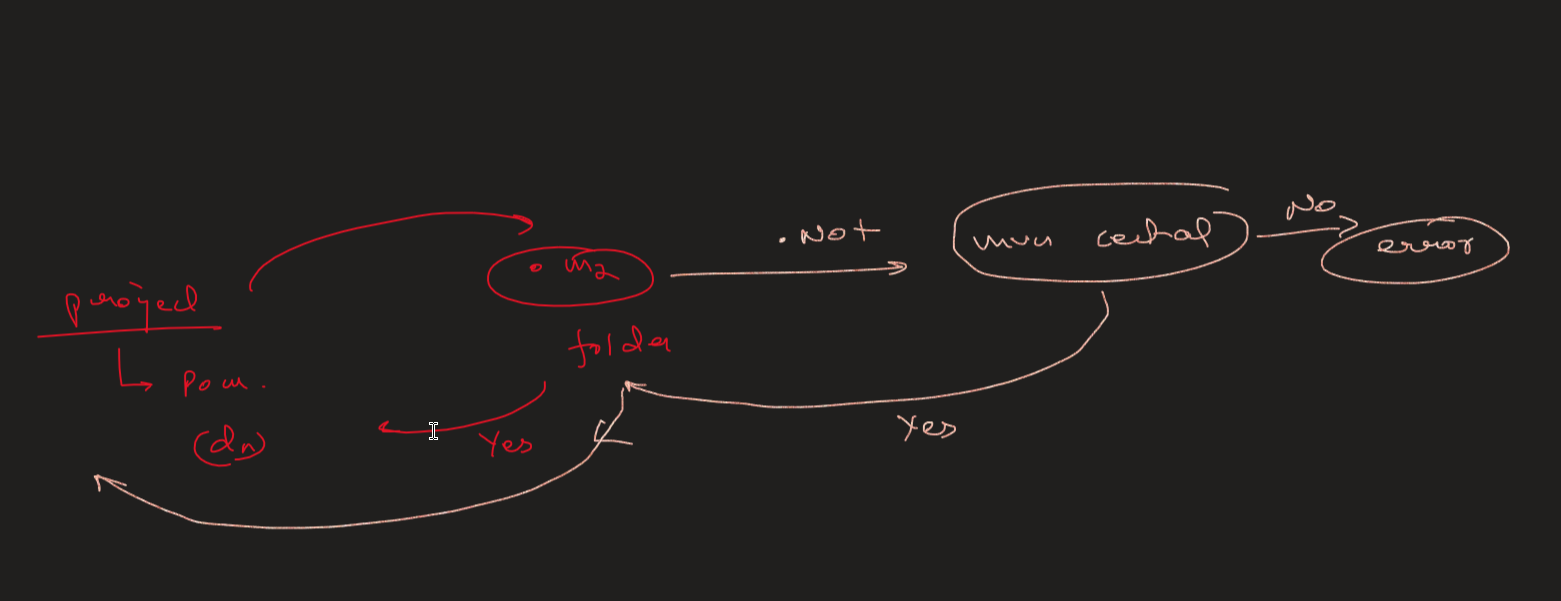 project
pom.
(dn)
.m2
folder
Yes
.Not
mvn central
No
error
Yes